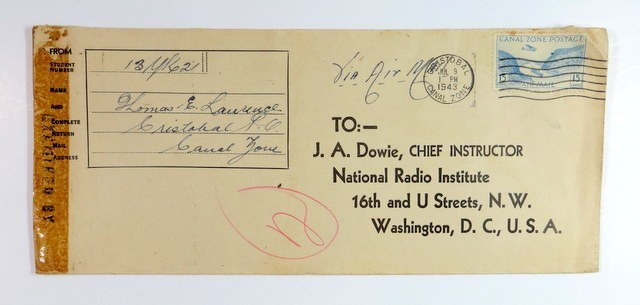 FROM
STUDENT
NUMBER
NAME
AND
COMPLETE
RETURN
MAIL
ADDRESS
EXAMINED BY
Thomas E. Lawrence
Cristobal
Canal Zone
Via Air
CRISTOBAL
1943
CANAL ZONE
CANAL ZONE POSTAGE
15 AIR MAIL 15
TO:—
J. A. Dowie, CHIEF INSTRUCTOR
National Radio Institute
16th and U Streets, N. W.
Washington, D. C., U. S. A.